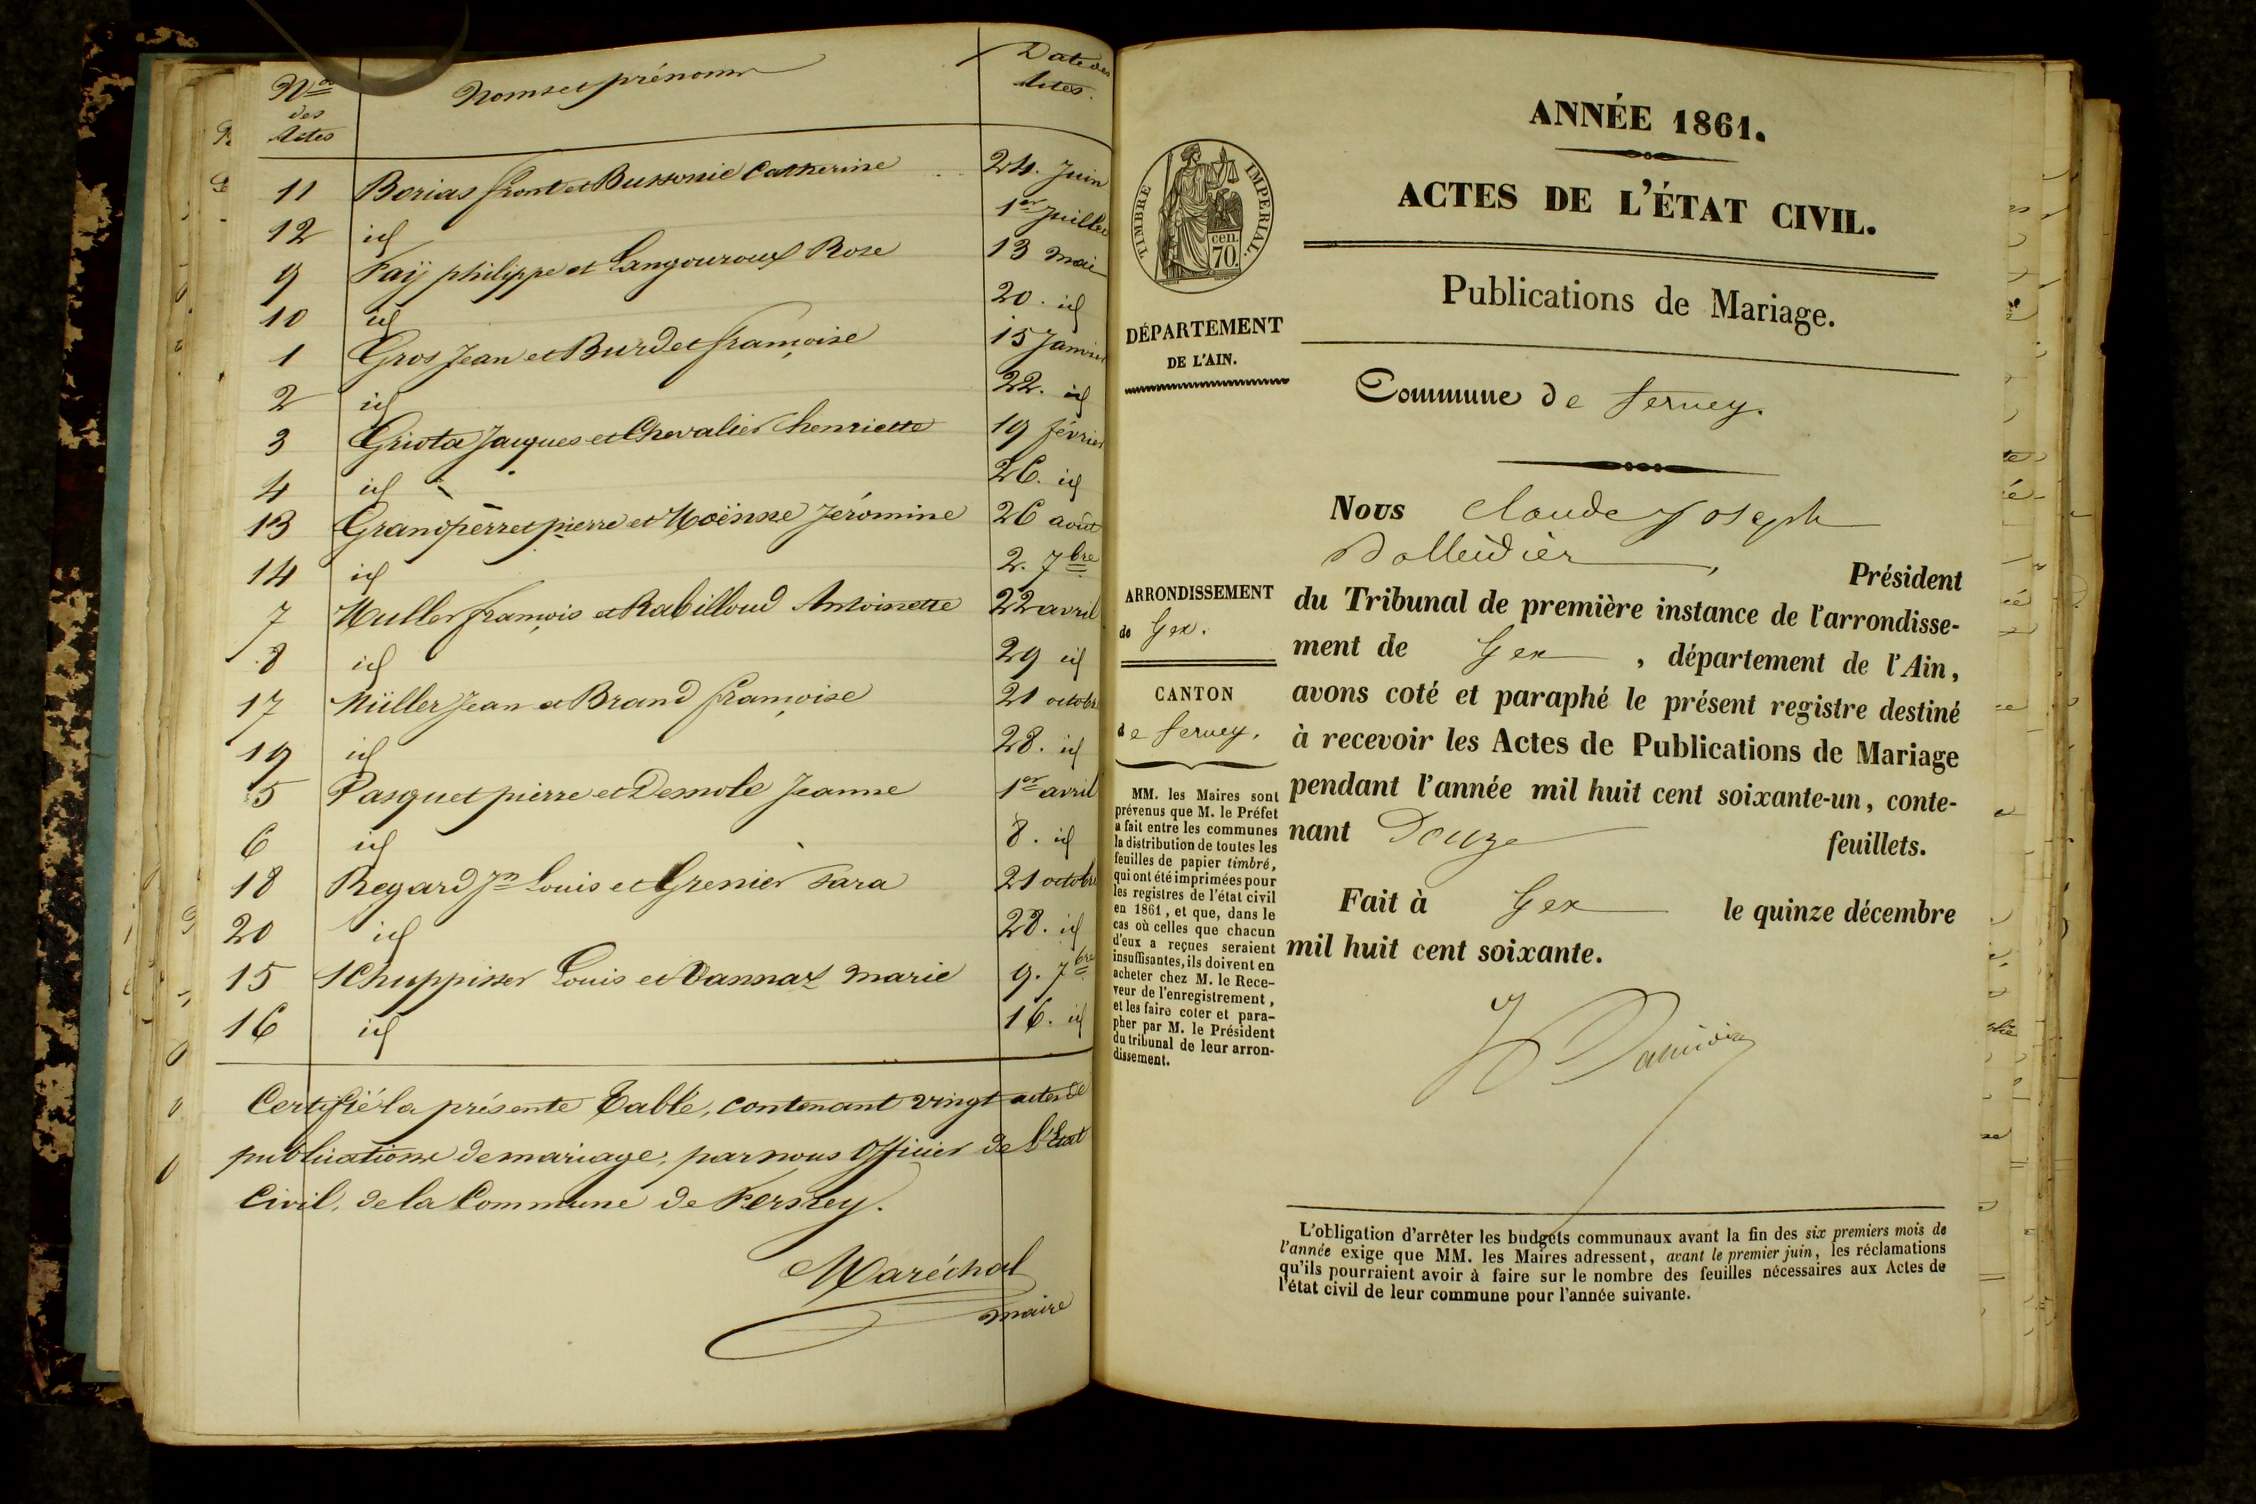 Nos
des
Actes
Noms et prénoms
Date des
Actes.
11 Borias front et Bussonie Catherine 24. Juin
12 id 1er Juillet
9 Faÿ philippe et Langouroux Rose 13 mai
10 id 20. id
1 Gros Jean et Burdet françoise 15 Janvier
2 id 22. id
3 Griota Jacques et Chevalier henriette 19 février
4 id 26. id
13 Grandperret pierre et Moënne Jéromine 26 août
14 id 2. 7bre
7 Muller françois et Rabilloud Antoinette 22 avril
8 id 29 id
17 Müller Jean et Brand françoise 21 octobre
19 id 28. id
5 Pasquet pierre et Demole Jeanne 1er avril
6 id 8. id
18 Regard Jn Louis et Grenier Sara 21 octobre
20 id 28. id
15 Schuppisser Louis et Dannaz marie 9. 7bre
16 id 16. id
Certifié la présente Table, contenant vingt actes de
publications de mariage, par nous Officier de l'État
Civil, de la Commune de Ferney.
Maréchal
maire
ANNÉE 1861.
ACTES DE L'ÉTAT CIVIL.
Publications de Mariage.
TIMBRE IMPERIAL.
cen.
70.
DÉPARTEMENT
DE L'AIN.
Commune de ferney.
Nous Claude Joseph
, Président
du Tribunal de première instance de l'arrondisse-
ment de Gex , département de l'Ain,
avons coté et paraphé le présent registre destiné
à recevoir les Actes de Publications de Mariage
pendant l'année mil huit cent soixante-un, conte-
nant Douze feuillets.
Fait à Gex le quinze décembre
mil huit cent soixante.
ARRONDISSEMENT
de Gex.
CANTON
de ferney.
MM. les Maires sont
prévenus que M. le Préfet
a fait entre les communes
la distribution de toutes les
feuilles de papier timbré,
qui ont été imprimées pour
les registres de l'état civil
en 1861, et que, dans le
cas où celles que chacun
d'eux a reçues seraient
insuffisantes, ils doivent en
acheter chez M. le Rece-
veur de l'enregistrement,
et les faire coter et para-
pher par M. le Président
du tribunal de leur arron-
dissement.
L'obligation d'arrêter les budgets communaux avant la fin des six premiers mois de
l'année exige que MM. les Maires adressent, avant le premier juin, les réclamations
qu'ils pourraient avoir à faire sur le nombre des feuilles nécessaires aux Actes de
l'état civil de leur commune pour l'année suivante.